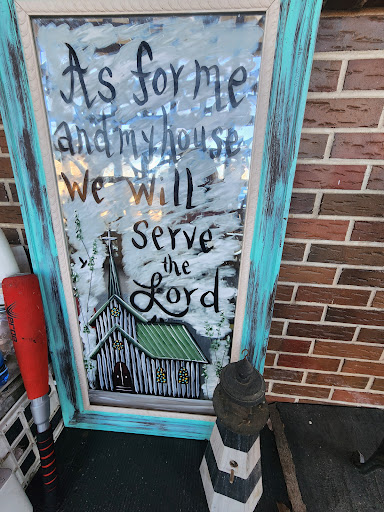 As for me
and my house
We Will
serve
the
Lord